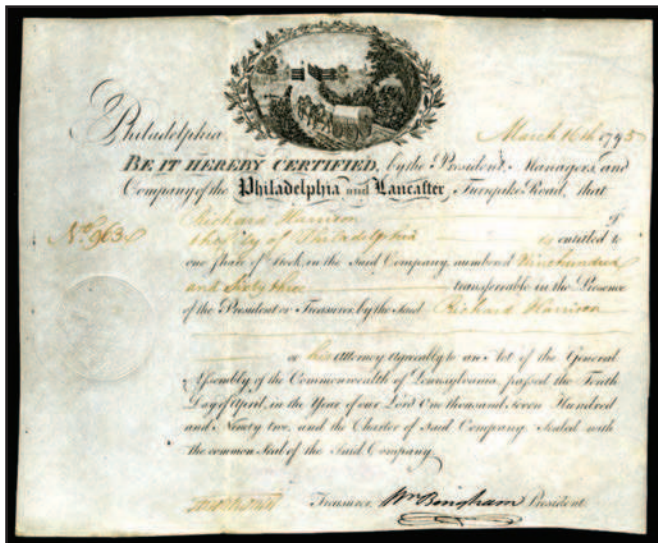 Philadelphia March 16th 1795
BE IT HEREBY CERTIFIED, by the President, Managers, and
Company of the Philadelphia and Lancaster Turnpike Road, that
Richard Harrison
No. 963 the City of Philadelphia is entitled to
one share of Stock, in the Said Company, numbered Nine hundred
and Sixty three transferable in the Presence
of the President or Treasurer, by the Said Richard Harrison
or his Attorney Agreeably to an Act of the General
Assembly of the Commonwealth of Pennsylvania, passed the Tenth
Day of April, in the Year of our Lord One thousand Seven Hundred
and Ninety two, and the Charter of Said Company. Sealed with
the common Seal of the Said Company.
Treasurer Wm Bingham President